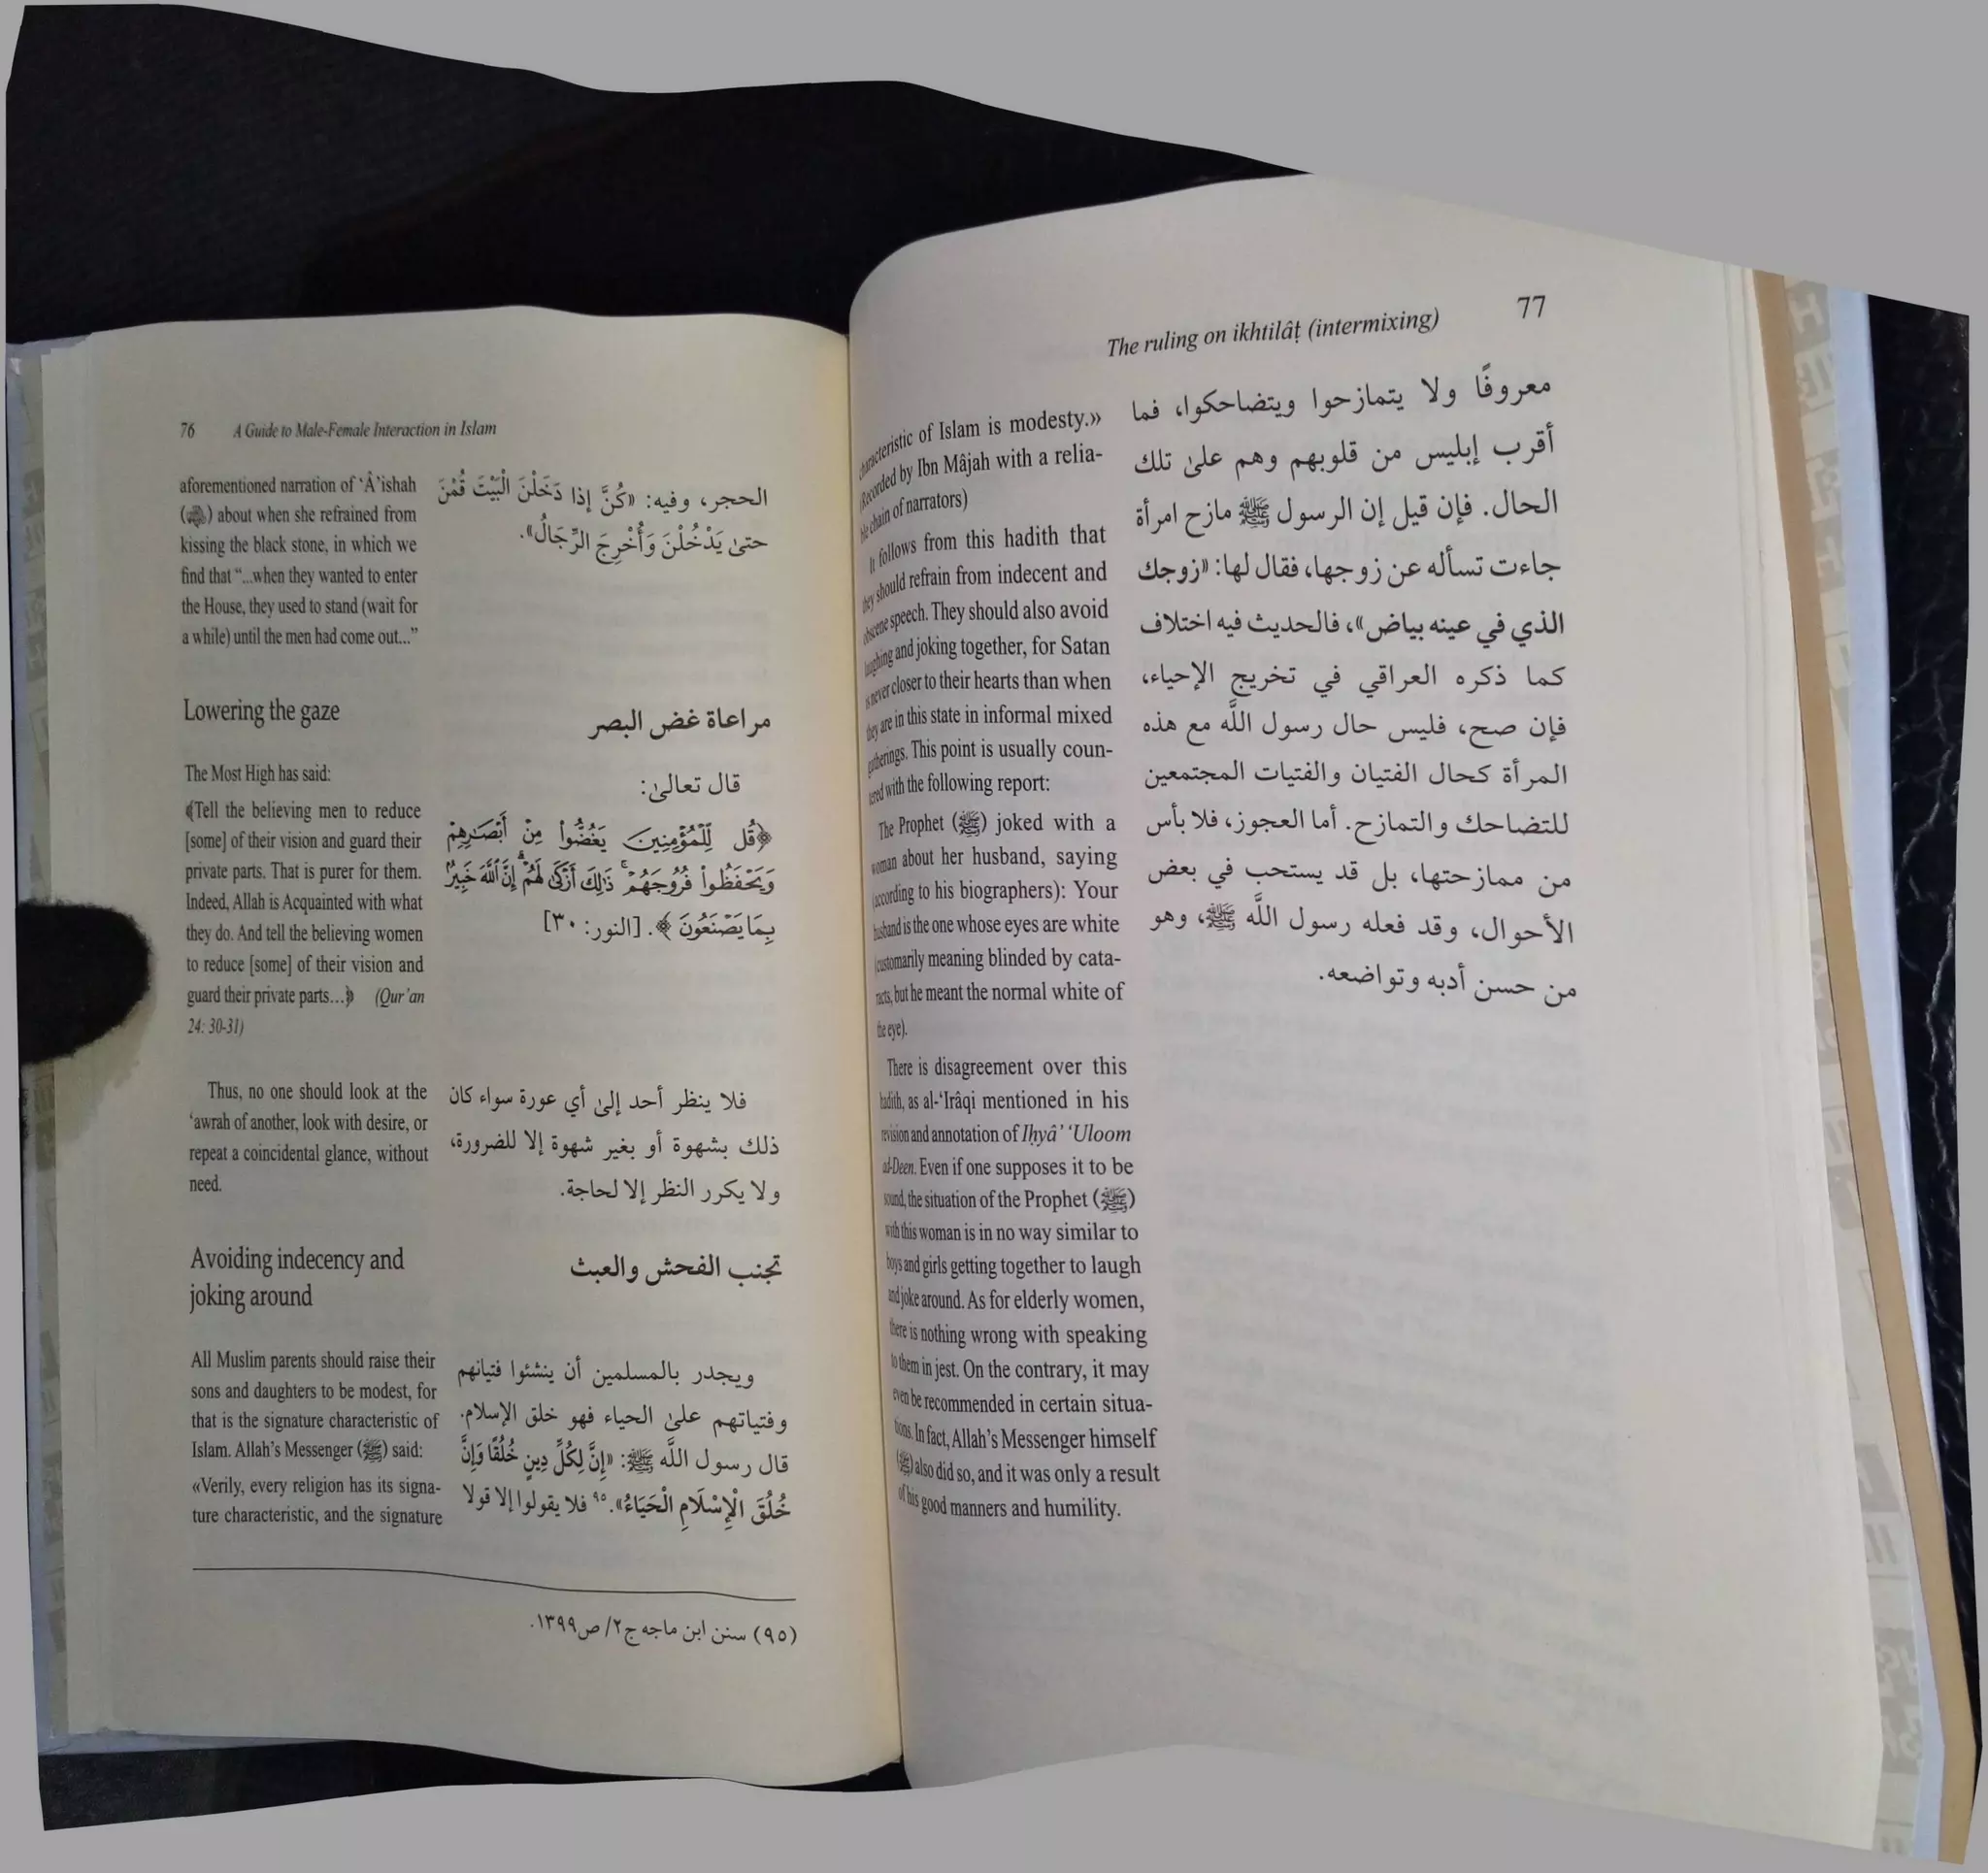 76 A Guide to Male-Female Interaction in Islam
aforementioned narration of ‘Â’ishah
(رضي الله عنها) about when she refrained from
kissing the black stone, in which we
find that “...when they wanted to enter
the House, they used to stand (wait for
a while) until the men had come out...”
Lowering the gaze
The Most High has said:
﴾Tell the believing men to reduce
[some] of their vision and guard their
private parts. That is purer for them.
Indeed, Allah is Acquainted with what
they do. And tell the believing women
to reduce [some] of their vision and
guard their private parts...﴿ (Qur’an
24: 30-31)
Thus, no one should look at the
‘awrah of another, look with desire, or
repeat a coincidental glance, without
need.
Avoiding indecency and
joking around
All Muslim parents should raise their
sons and daughters to be modest, for
that is the signature characteristic of
Islam. Allah’s Messenger (ﷺ) said:
«Verily, every religion has its signa-
ture characteristic, and the signature
الحجر، وفيه: «كُنَّ إذا دَخَلْنَ الْبَيْتَ قُمْنَ
حتىٰ يَدْخُلْنَ وَأُخْرِجَ الرِّجَالُ».
مراعاة غض البصر
قال تعالىٰ:
﴿قُل لِّلْمُؤْمِنِينَ يَغُضُّوا۟ مِنْ أَبْصَـٰرِهِمْ
وَيَحْفَظُوا۟ فُرُوجَهُمْ ۚ ذَٰلِكَ أَزْكَىٰ لَهُمْ ۗ إِنَّ ٱللَّهَ خَبِيرٌۢ
بِمَا يَصْنَعُونَ﴾. [النور: ٣٠]
فلا ينظر أحد إلىٰ أي عورة سواء كان
ذلك بشهوة أو بغير شهوة إلا للضرورة،
ولا يكرر النظر إلا لحاجة.
تجنب الفحش والعبث
ويجدر بالمسلمين أن ينشئوا فتيانهم
وفتياتهم علىٰ الحياء فهو خلق الإسلام.
قال رسول اللَّه ﷺ: «إِنَّ لِكُلِّ دِينٍ خُلُقًا وَإِنَّ
خُلُقَ الْإِسْلَامِ الْحَيَاءُ».٩٥ فلا يقولوا إلا قولا
(٩٥) سنن ابن ماجه ج٢/ ص١٣٩٩.
The ruling on ikhtilâṭ (intermixing) 77
characteristic of Islam is modesty.»
(Recorded by Ibn Mâjah with a relia-
ble chain of narrators)
It follows from this hadith that
they should refrain from indecent and
obscene speech. They should also avoid
laughing and joking together, for Satan
is never closer to their hearts than when
they are in this state in informal mixed
gatherings. This point is usually coun-
tered with the following report:
The Prophet (ﷺ) joked with a
woman about her husband, saying
(according to his biographers): Your
husband is the one whose eyes are white
(customarily meaning blinded by cata-
racts, but he meant the normal white of
the eye).
There is disagreement over this
hadith, as al-‘Irâqi mentioned in his
revision and annotation of Iḥyâ’ ‘Uloom
ad-Deen. Even if one supposes it to be
sound, the situation of the Prophet (ﷺ)
with this woman is in no way similar to
boys and girls getting together to laugh
and joke around. As for elderly women,
there is nothing wrong with speaking
to them in jest. On the contrary, it may
even be recommended in certain situa-
tions. In fact, Allah’s Messenger himself
(ﷺ) also did so, and it was only a result
of his good manners and humility.
معروفًا ولا يتمازحوا ويتضاحكوا، فما
أقرب إبليس من قلوبهم وهم علىٰ تلك
الحال. فإن قيل إن الرسول ﷺ مازح امرأة
جاءت تسأله عن زوجها، فقال لها: «زوجك
الذي في عينه بياض»، فالحديث فيه اختلاف
كما ذكره العراقي في تخريج الإحياء،
فإن صح، فليس حال رسول اللَّه مع هذه
المرأة كحال الفتيان والفتيات المجتمعين
للتضاحك والتمازح. أما العجوز، فلا بأس
من ممازحتها، بل قد يستحب في بعض
الأحوال، وقد فعله رسول اللَّه ﷺ، وهو
من حسن أدبه وتواضعه.